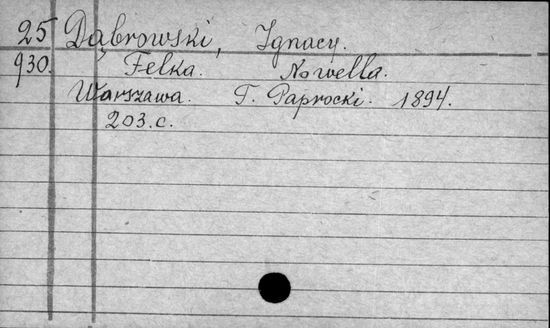 25 Dąbrowski, Ignacy.
930. Felka. Nowella.
Warszawa. T. Paprocki. 1894.
203.c.